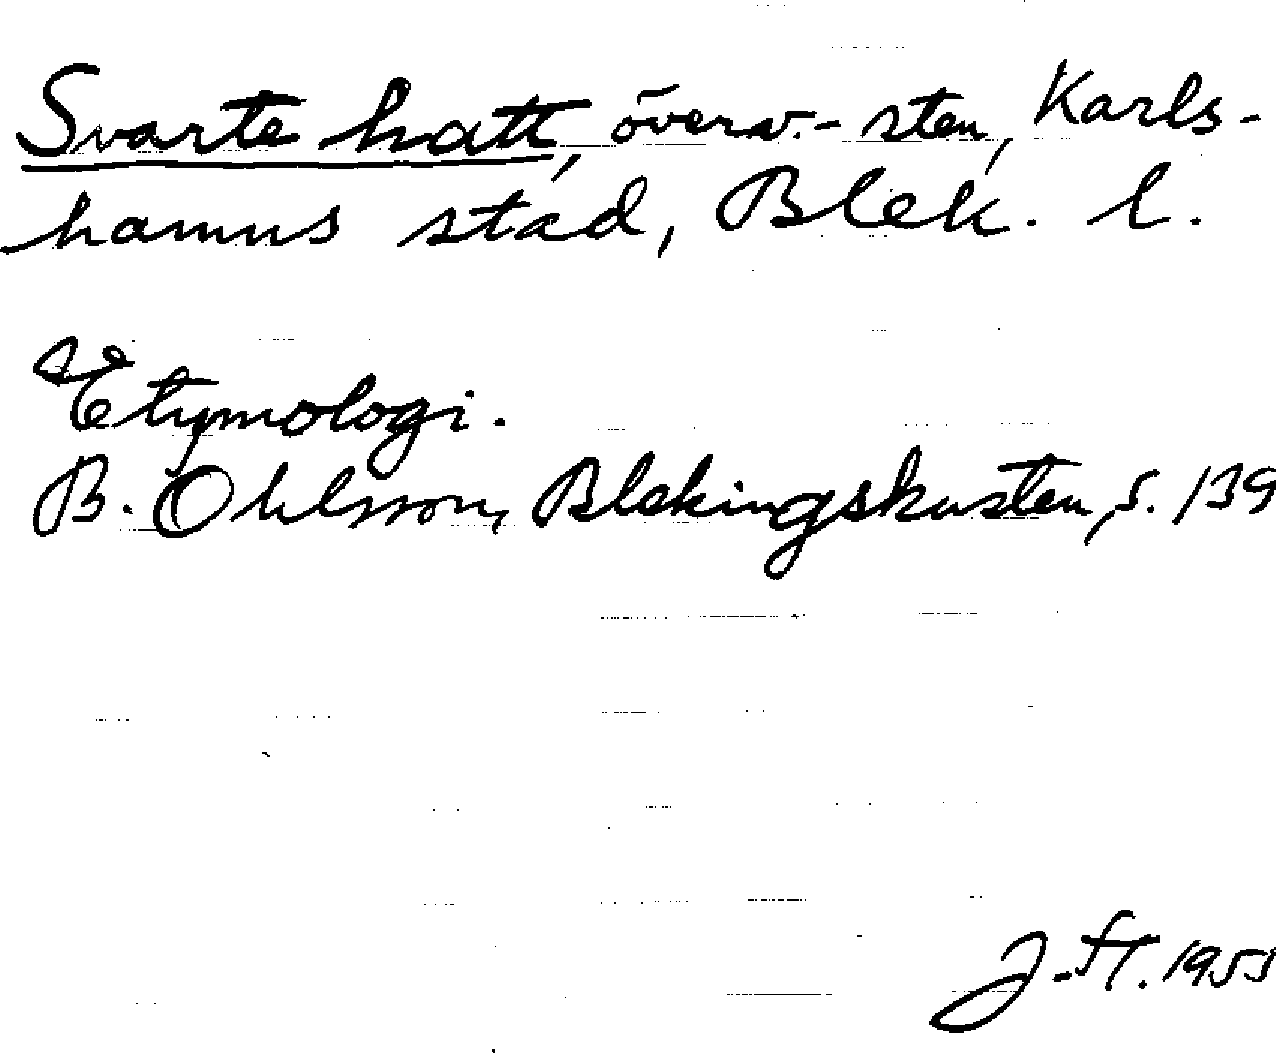 Svarte hatt, överv.-sten, Karls-
hamns stad, Blek. l.
Etymologi.
B. Ohlsson, Blekingskusten, s. 139
J. St. 1955